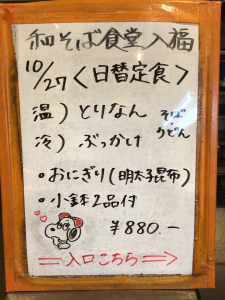 和そば食堂入福
10/27<日替定食>
温)とりなん
冷)ぶっかけ
そば・うどん
・おにぎり(明太子昆布)
・小鉢2品付
¥880.-
⇒入口こちら⇒